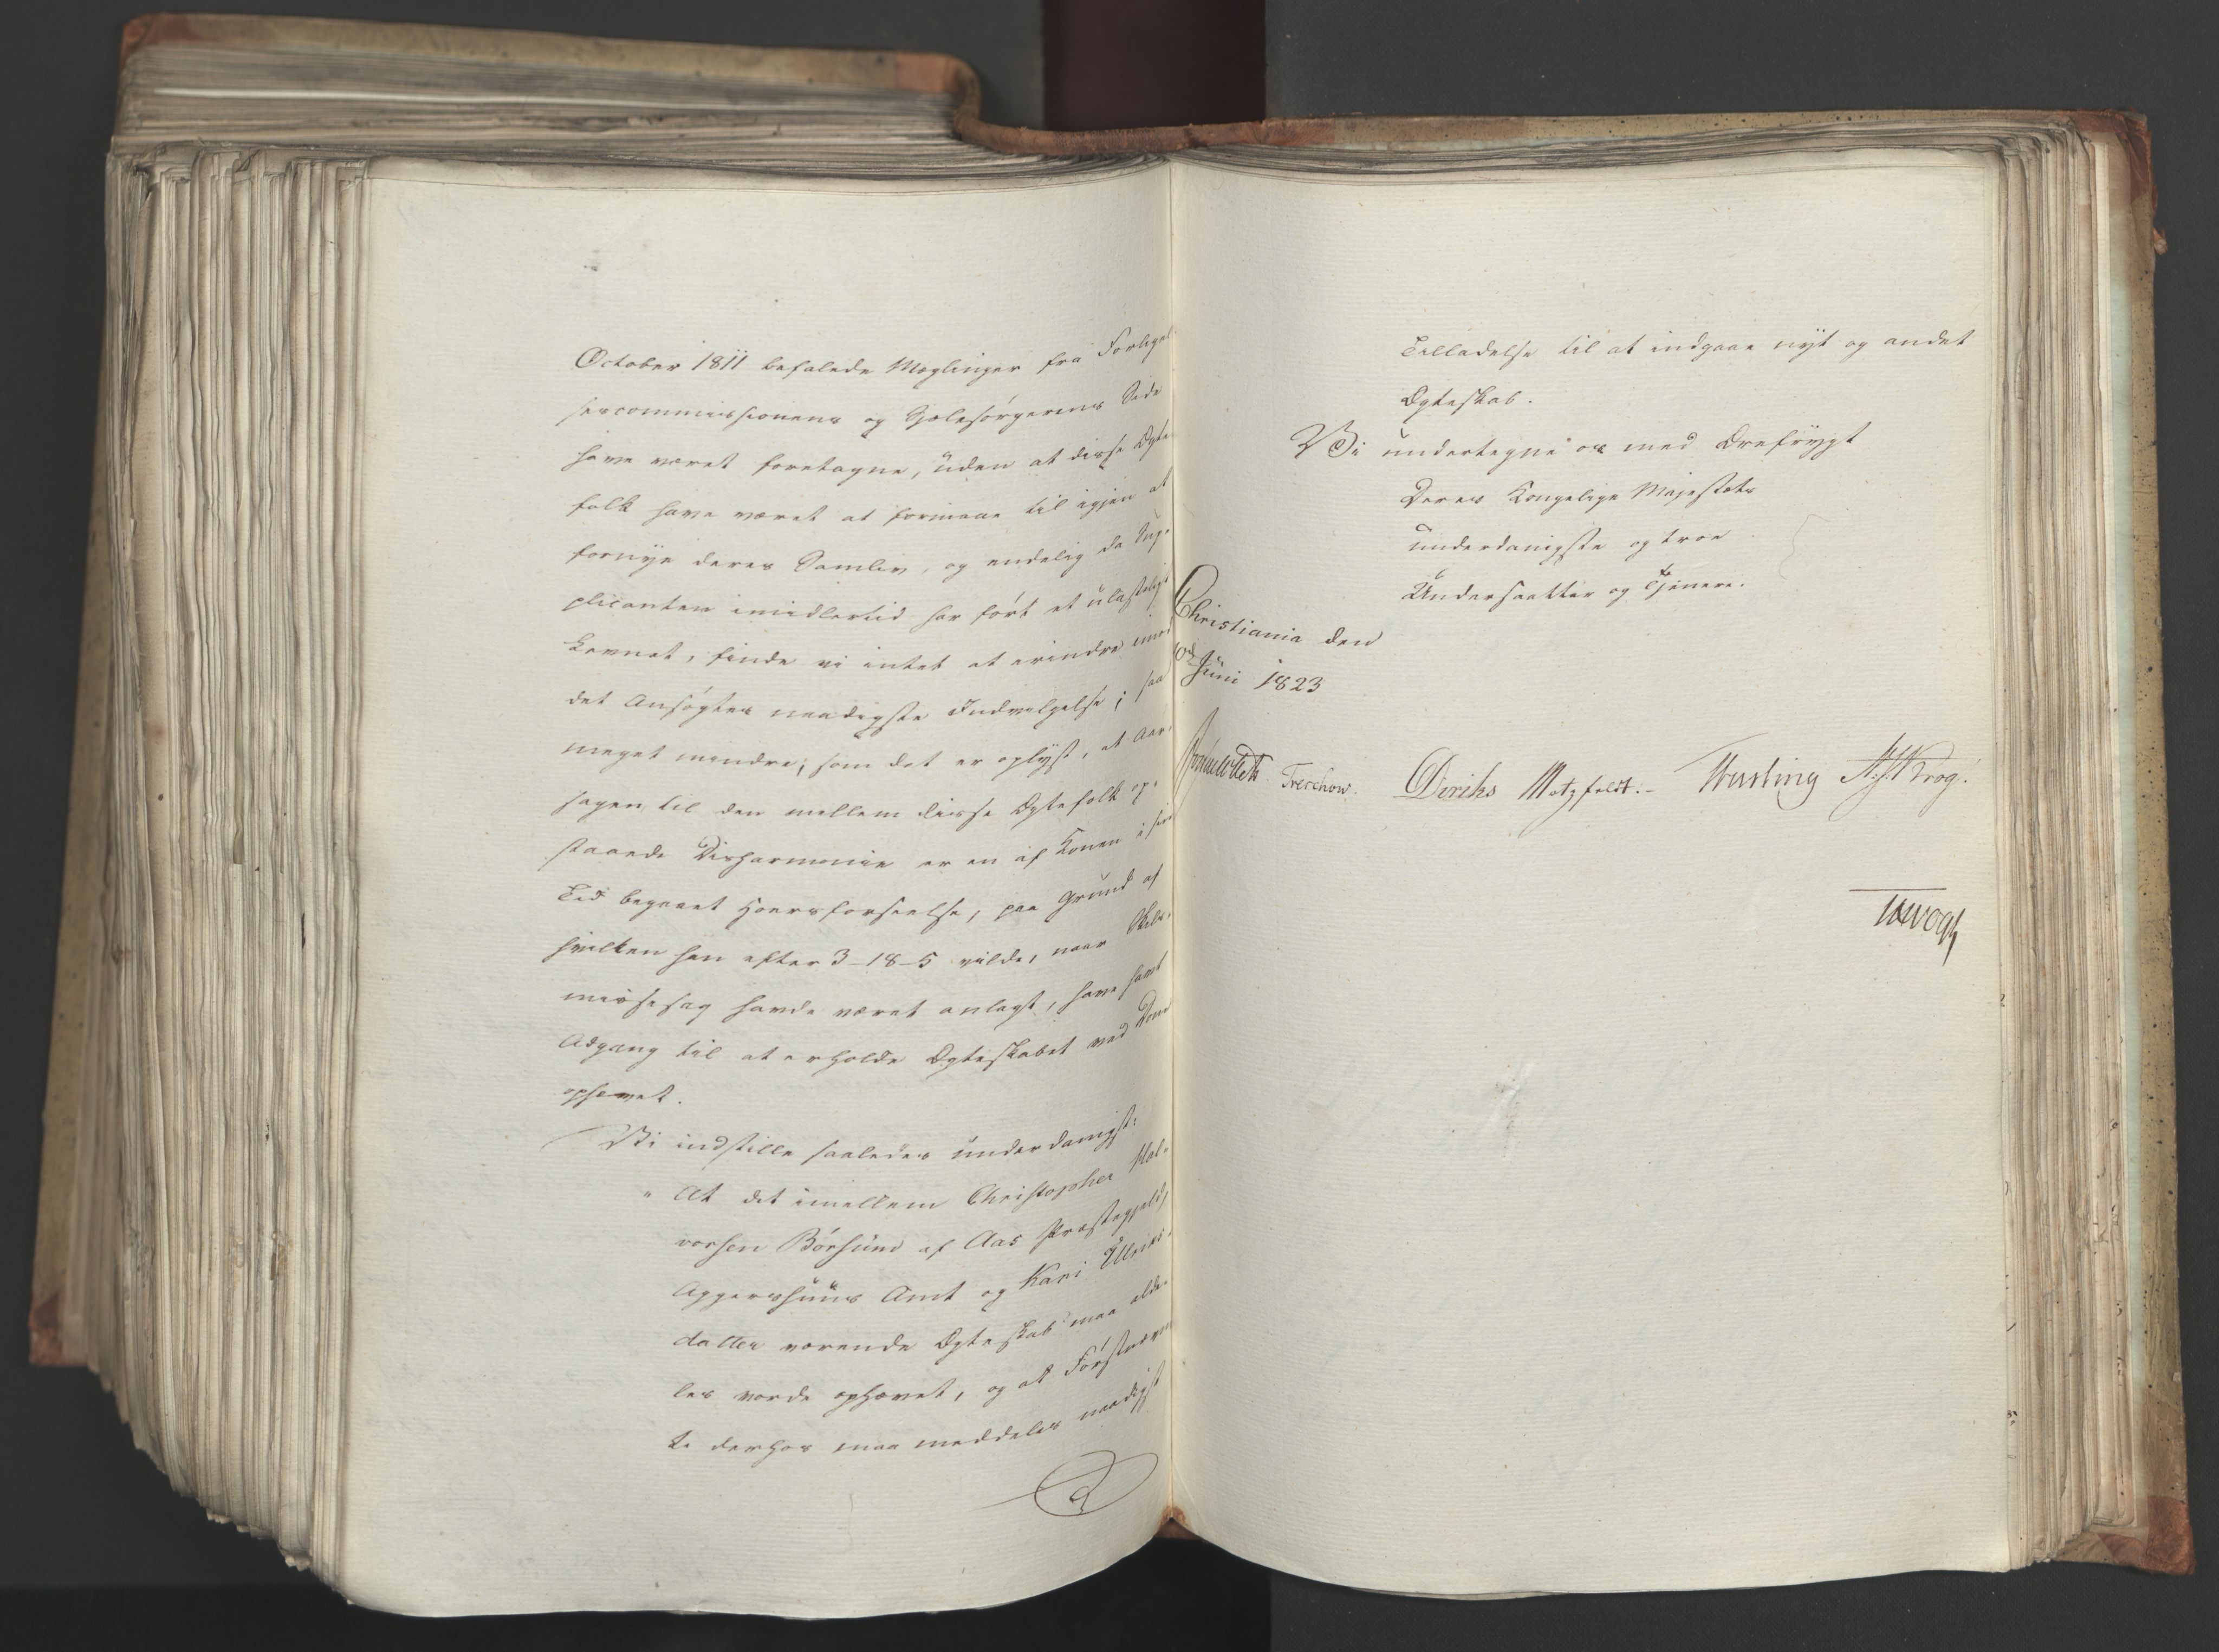 October 1811 befalede Mæglinger fra Forligel
sescommissionens og Sjelesørgerens Side
have været foretagne, uden at disse Ægte
folk have været at formaae til igjen at
fornye deres Samliv, og endelig da Sup-
plicanten imidlertid har ført et ulasteligt
Levnet, finde vi intet at erindre imod
det Ansøgtes naadigste Indvilgelse; saa
meget mindre, som det er oplyst, at Aar-
sagen til den mellem disse Ægtefolk op-
staaede Disharmonie er en af Konen i sin
Tid begaaet Hoersforseelse, paa Grund af
hvilken han efter 3-18-5 vilde, naar Skils-
missesag havde været anlagt, have havt
Adgang til at erholde Ægteskabet ved Dom
ophævet.
Vi indstille saaledes underdanigst:
" At det imellem Christopher Hal-
vorsen Børsum af Aas Præstegjeld,
Aggershuus Amt og Kari Ulriks-
datter værende Ægteskab maa alde-
les vorde ophævet, og at Førstnævn
te derhos maa meddeles naadigst
Tilladelse til at indgaae nyt og andet
Ægteskab.
Vi undertegne os med Ærefrygt
Deres Kongelige Majestæts
underdanigste og troe
Undersaatter og Tjenere.
Christiania den
Juni 1823
Treschow. Diriks Motzfeldt.- Krog.